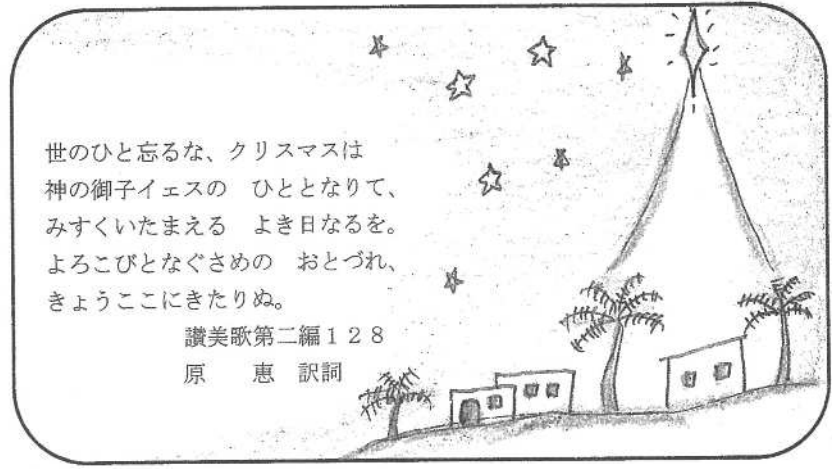 世のひと忘るな、クリスマスは
神の御子イェスの　ひととなりて、
みすくいたまえる　よき日なるを。
よろこびとなぐさめの　おとづれ、
きょうここにきたりぬ。
讃美歌第二編１２８
原　　恵　訳詞